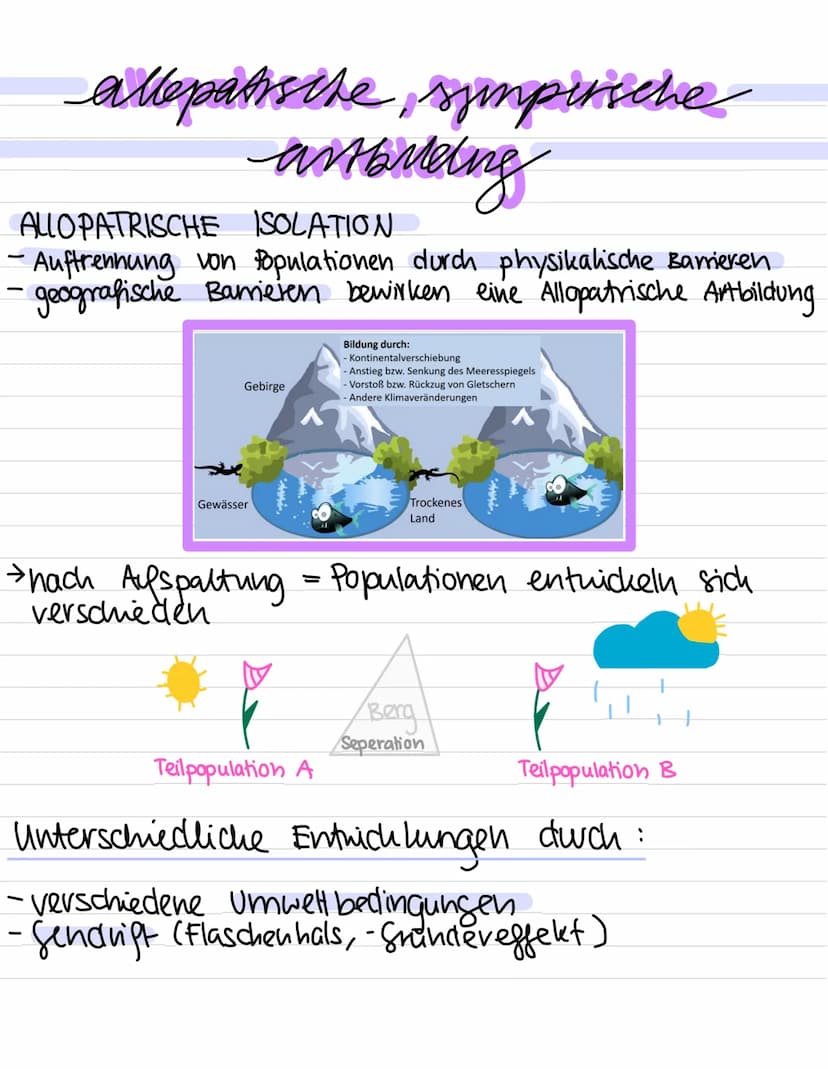 allopatrische, sympirische
artbildung
ALLOPATRISCHE ISOLATION
- Auftrennung von Populationen durch physikalische Barrieren
- geografische Barrieren bewirken eine Allopatrische Artbildung
Bildung durch:
- Kontinentalverschiebung
- Anstieg bzw. Senkung des Meeresspiegels
- Vorstoß bzw. Rückzug von Gletschern
- Andere Klimaveränderungen
Gebirge
Gewässer
Trockenes
Land
→ nach Aufspaltung = Populationen entwickeln sich
verschieden
Berg
Seperation
Teilpopulation A
Teilpopulation B
Unterschiedliche Entwicklungen durch:
- verschiedene Umweltbedingungen
- Gendrift (Flaschenhals, - Gründereffekt)